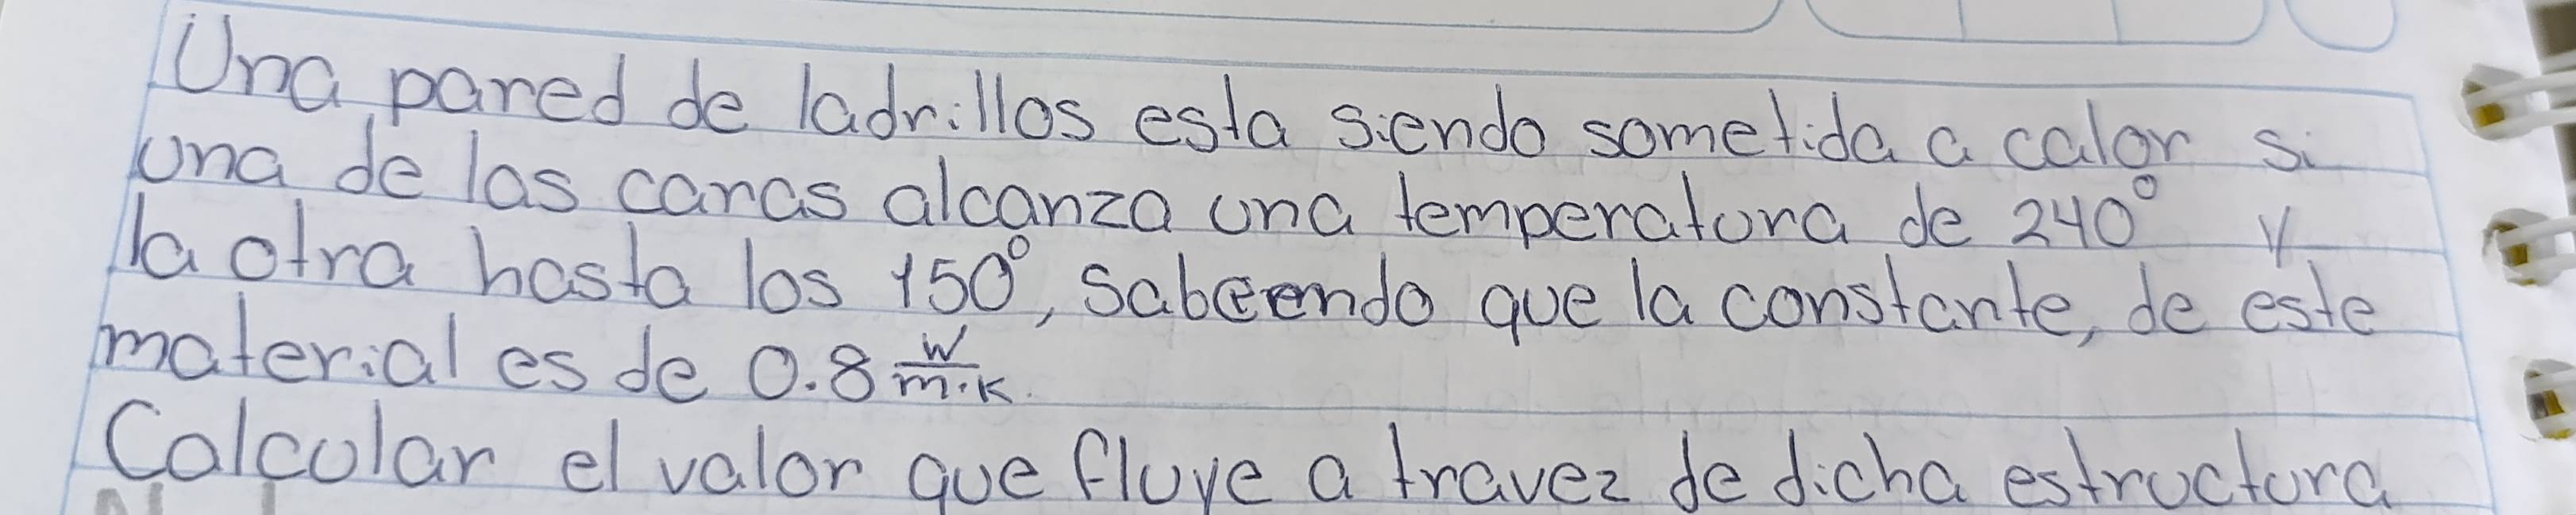 Una pared de ladrillos esta siendo sometida a calor si
una de las caras alcanza una temperatura de 240° y
la otra hasta los 150°, sabeendo que la constante, de este
material es de 0.8 W/m·K.
Calcular el valor que fluye a travez de dicha estructura